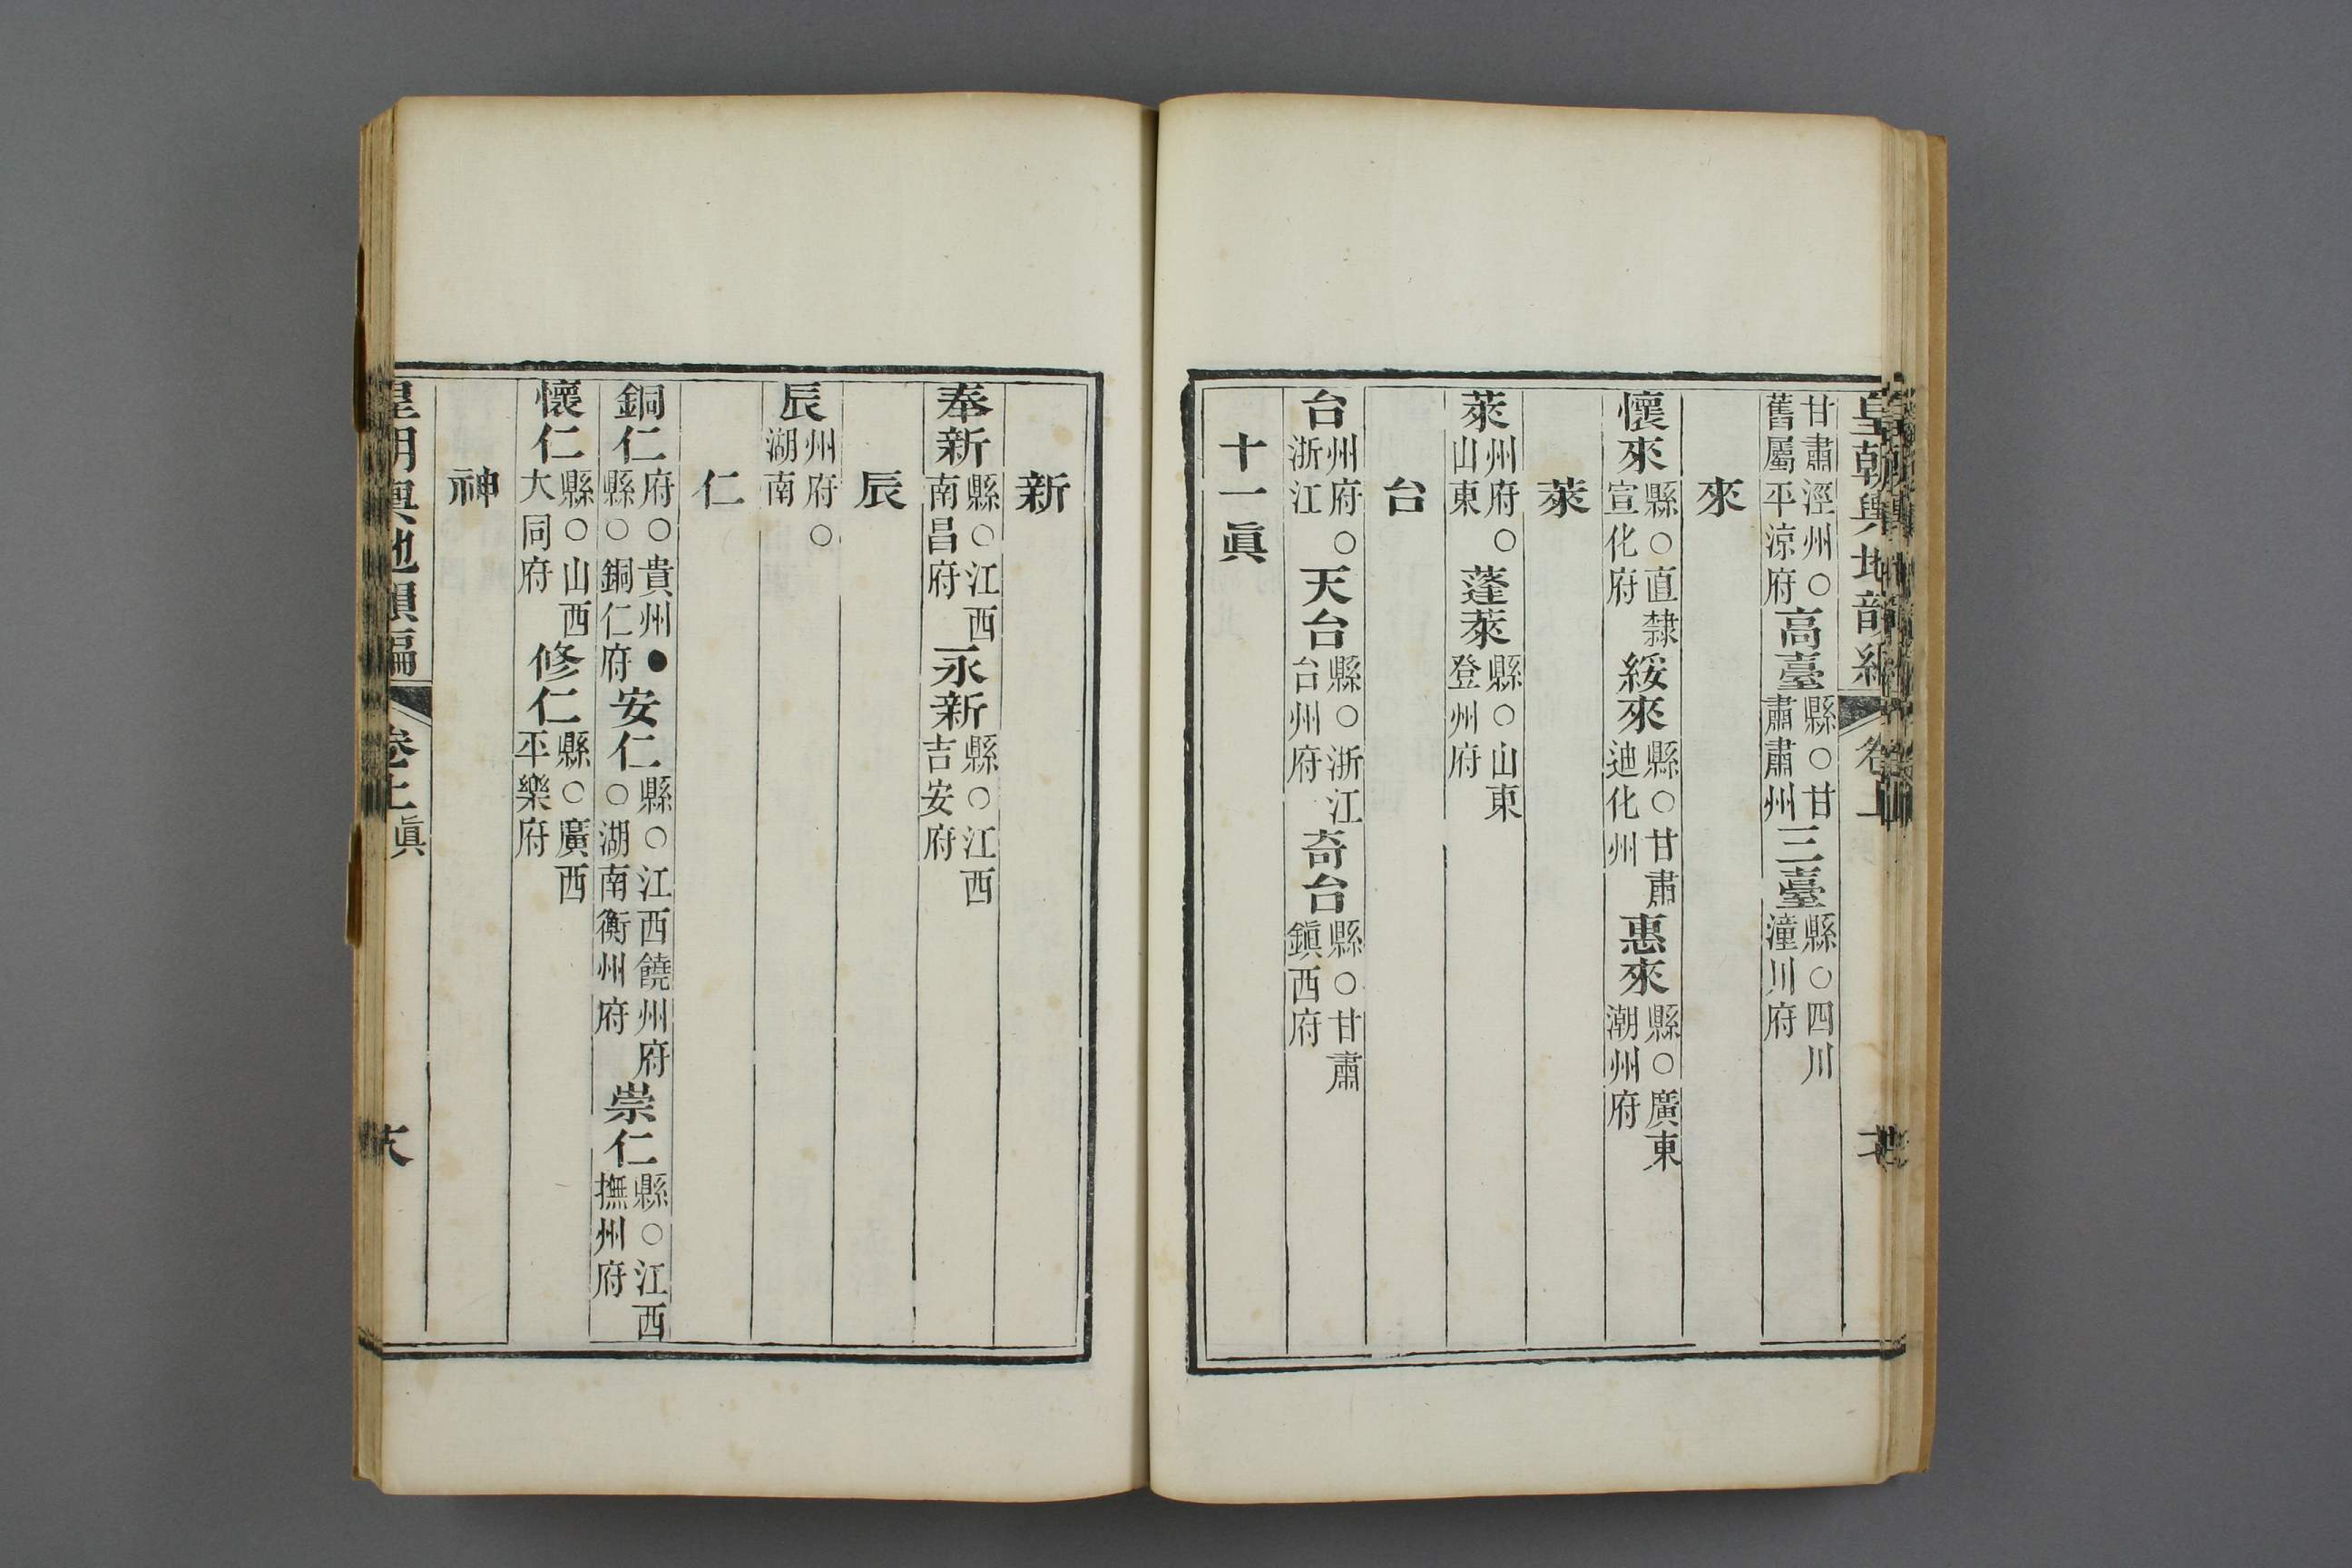 皇朝輿地韻編 卷上
甘肅涇州○舊屬平涼府高臺縣○甘肅肅州三臺縣○四川潼川府
來
懷來縣○直隸宣化府綏來縣○甘肅迪化州惠來縣○廣東潮州府
萊
萊州府○山東蓬萊縣○山東登州府
台
台州府○浙江天台縣○浙江台州府奇台縣○甘肅鎭西府
十一眞
新
奉新縣○江西南昌府永新縣○江西吉安府
辰
辰州府○湖南
仁
銅仁府○貴州●縣○銅仁府安仁縣○江西饒州府○湖南衡州府崇仁縣○江西撫州府
懷仁縣○山西大同府修仁縣○廣西平樂府
神
皇朝輿地韻編 卷上 眞